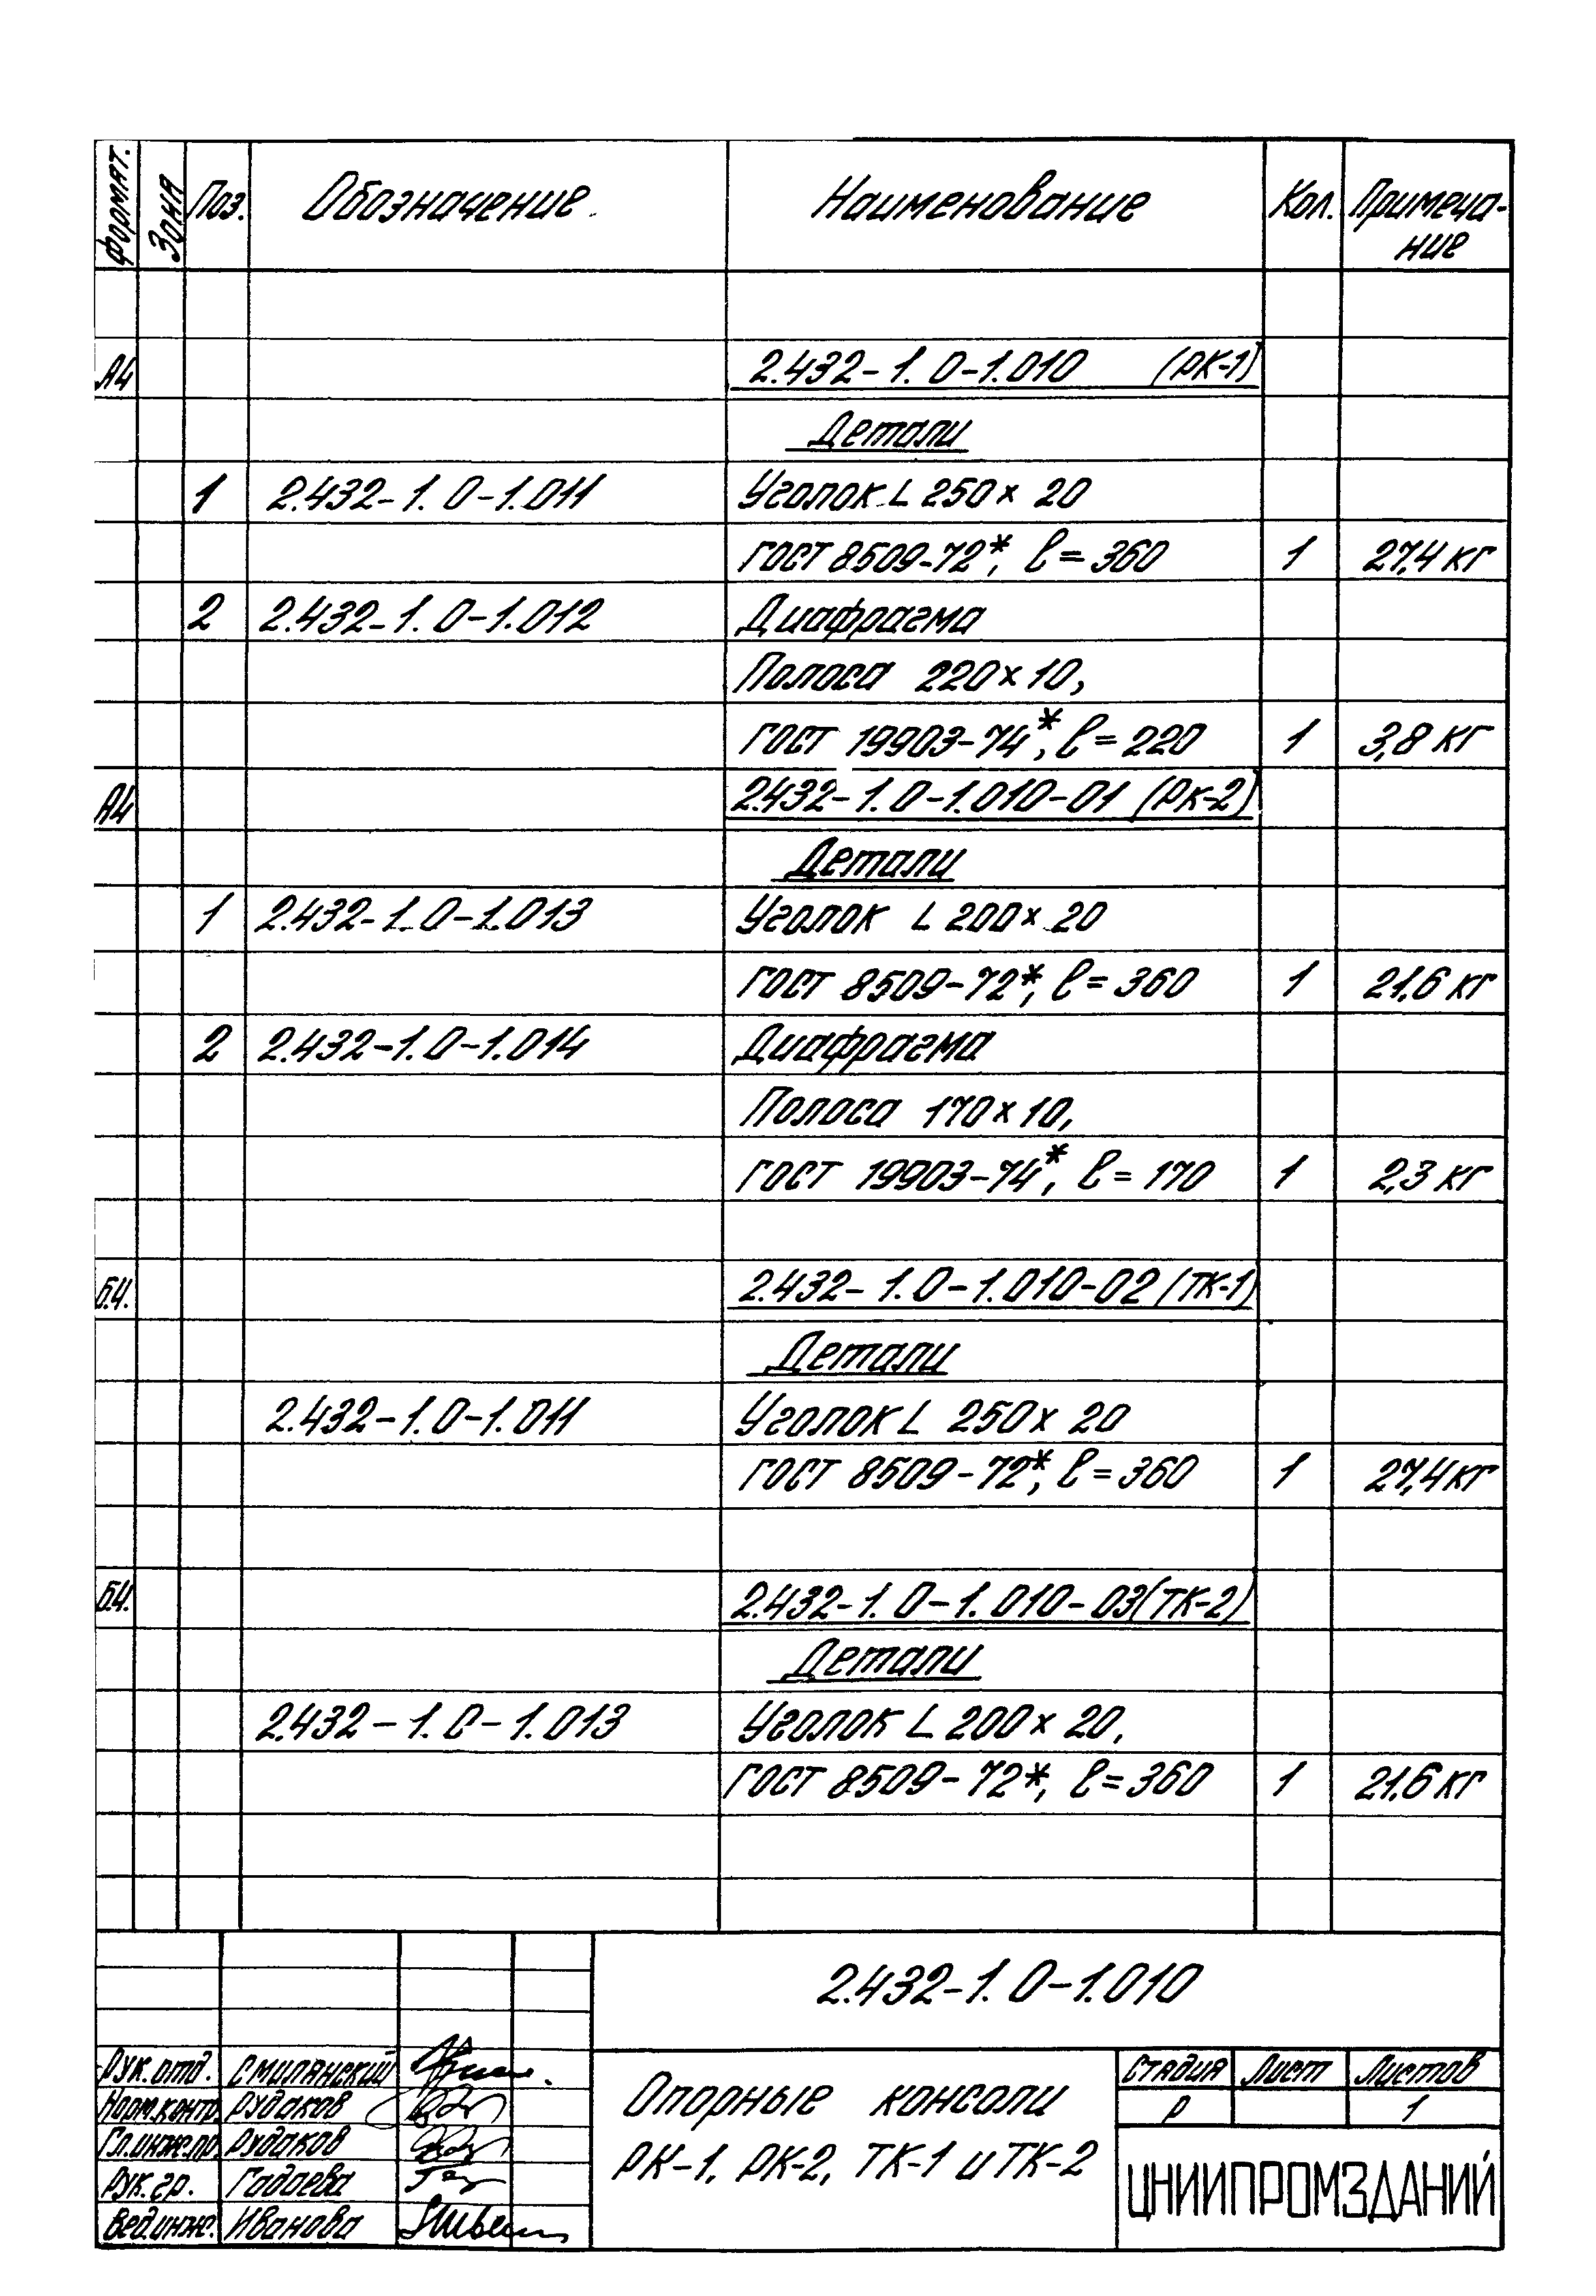 Формат. Зона Поз. Обозначение. Наименование Кол. Примеча-
ние
А4 2.432-1.0-1.010 (РК-1)
Детали
1 2.432-1.0-1.011 Уголок L 250×20
ГОСТ 8509-72*, ℓ=360 1 27,4 кг
2 2.432-1.0-1.012 Диафрагма
Полоса 220×10,
ГОСТ 19903-74*, ℓ=220 1 3,8 кг
А4 2.432-1.0-1.010-01 (РК-2)
Детали
1 2.432-1.0-1.013 Уголок L 200×20
ГОСТ 8509-72*, ℓ=360 1 21,6 кг
2 2.432-1.0-1.014 Диафрагма
Полоса 170×10,
ГОСТ 19903-74*, ℓ=170 1 2,3 кг
Б.Ч. 2.432-1.0-1.010-02 (ТК-1)
Детали
2.432-1.0-1.011 Уголок L 250×20
ГОСТ 8509-72*, ℓ=360 1 27,4 кг
Б.Ч. 2.432-1.0-1.010-03 (ТК-2)
Детали
2.432-1.0-1.013 Уголок L 200×20,
ГОСТ 8509-72*, ℓ=360 1 21,6 кг
2.432-1.0-1.010
Рук. отд. Смилянский
Норм.контр. Рудаков
Гл.инж.пр. Рудаков
Рук. гр. Гадаева
Вед.инж. Иванова
Опорные консоли
РК-1, РК-2, ТК-1 и ТК-2
Стадия Лист Листов
Р 1
ЦНИИПРОМЗДАНИЙ